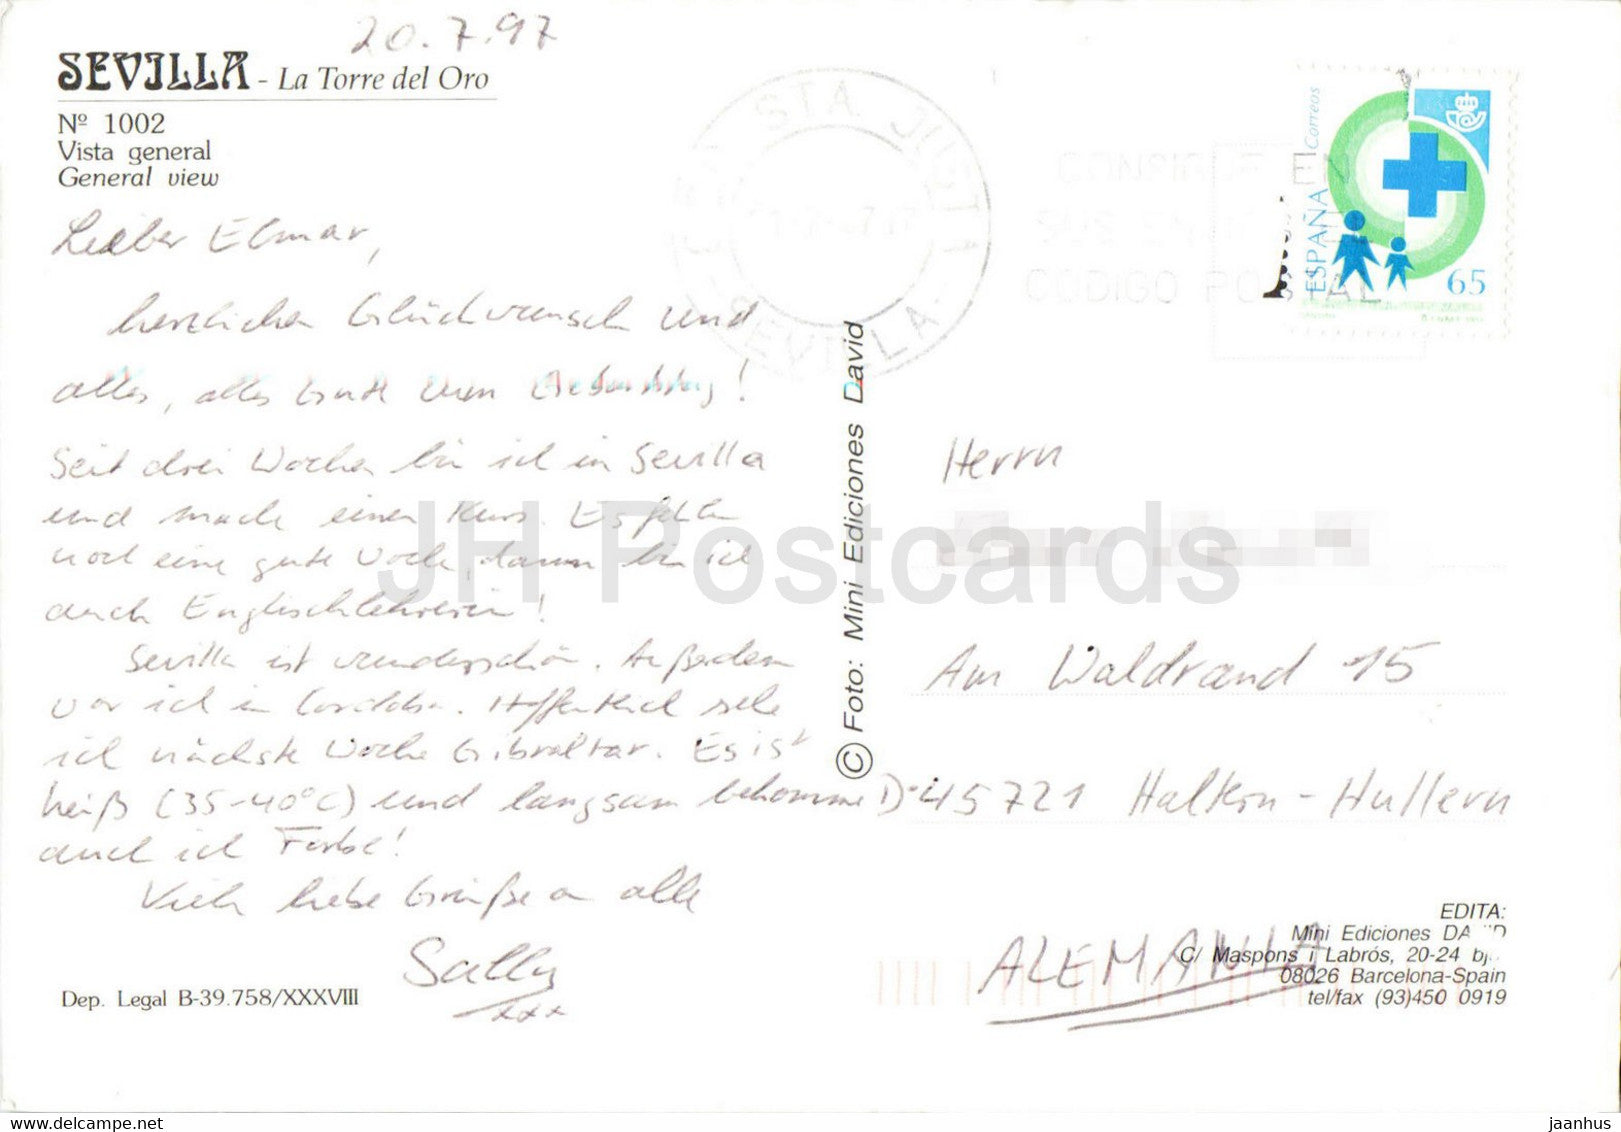 20.7.97
SEVILLA - La Torre del Oro
Nº 1002
Vista general
General view
Lieber Elmar,
herzlichen Glückwunsch und
alles, alles Gute zum Geburtstag!
Seit drei Wochen bin ich in Sevilla
und mache einen Kurs. Es fehlt
noch eine gute Woche, dann bin ich
auch Englischlehrerin!
Sevilla ist wunderschön. Außerdem
war ich in Cordoba. Hoffentlich sehe
ich nächste Woche Gibraltar. Es ist
heiß (35-40°C) und langsam bekomme
auch ich Farbe!
Viele liebe Grüße an alle
Sally
xxx
Dep. Legal B-39.758/XXXVIII
© Foto: Mini Ediciones David
STA. JUSTA
SEVILLA
CONSIGNE EN
SUS ENVIOS EL
CODIGO POSTAL
Correos
ESPAÑA
65
Herrn
Am Waldrand 15
D-45721 Haltern-Hullern
ALEMANIA
EDITA:
Mini Ediciones DAVID
C/ Maspons i Labrós, 20-24 bjos
08026 Barcelona-Spain
tel/fax (93)450 0919
JH Postcards
www.delcampe.net
jaanhus